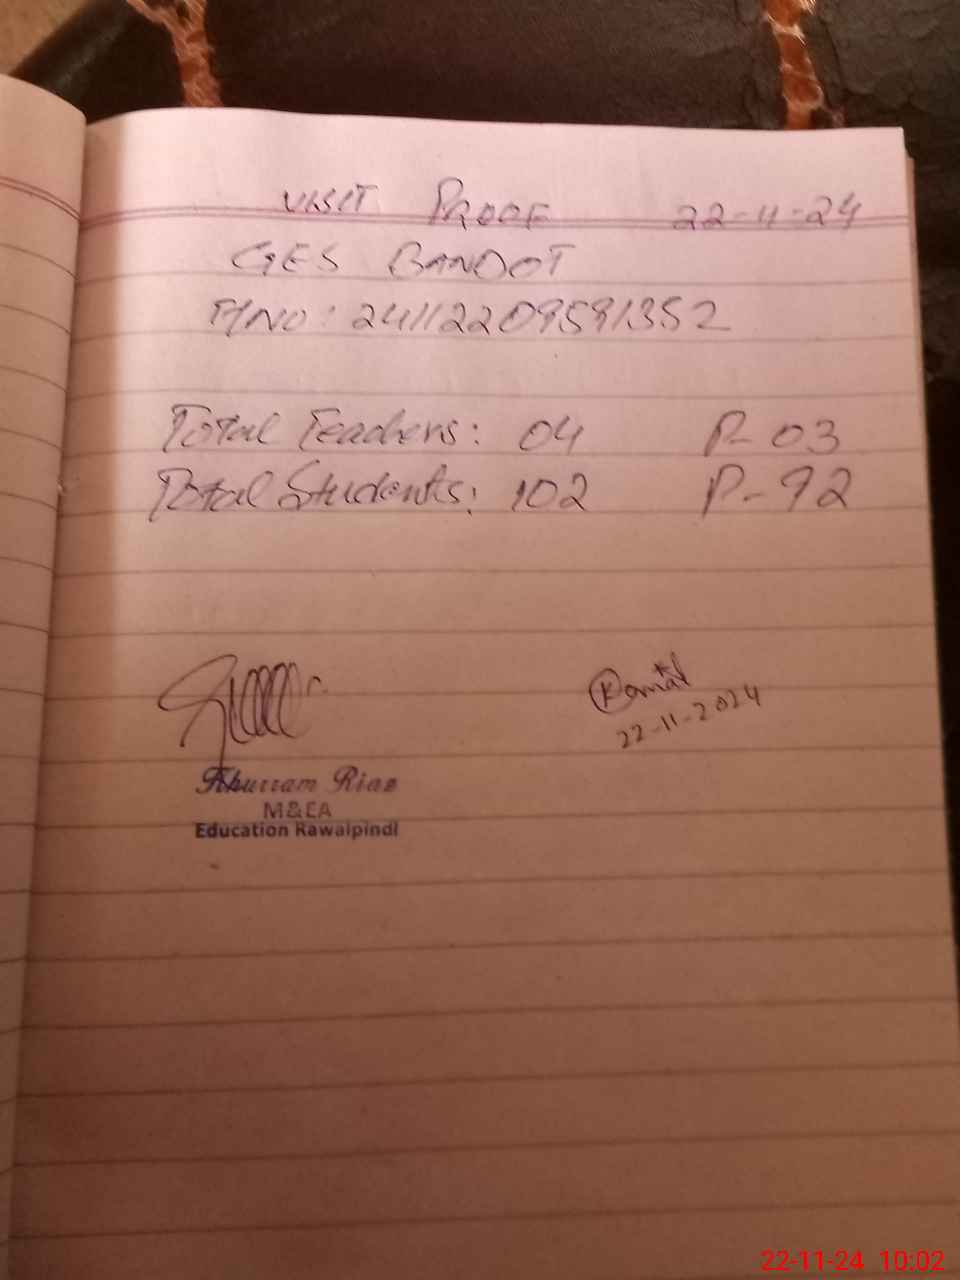 VISIT PROOF 22-11-24
GES BANDOT
H/NO: 24112209591352
Total Teachers: 04 P- 03
Total Students: 102 P- 92
Khurram Riaz
M&EA
Education Rawalpindi
22-11-2024
22-11-24 10:02